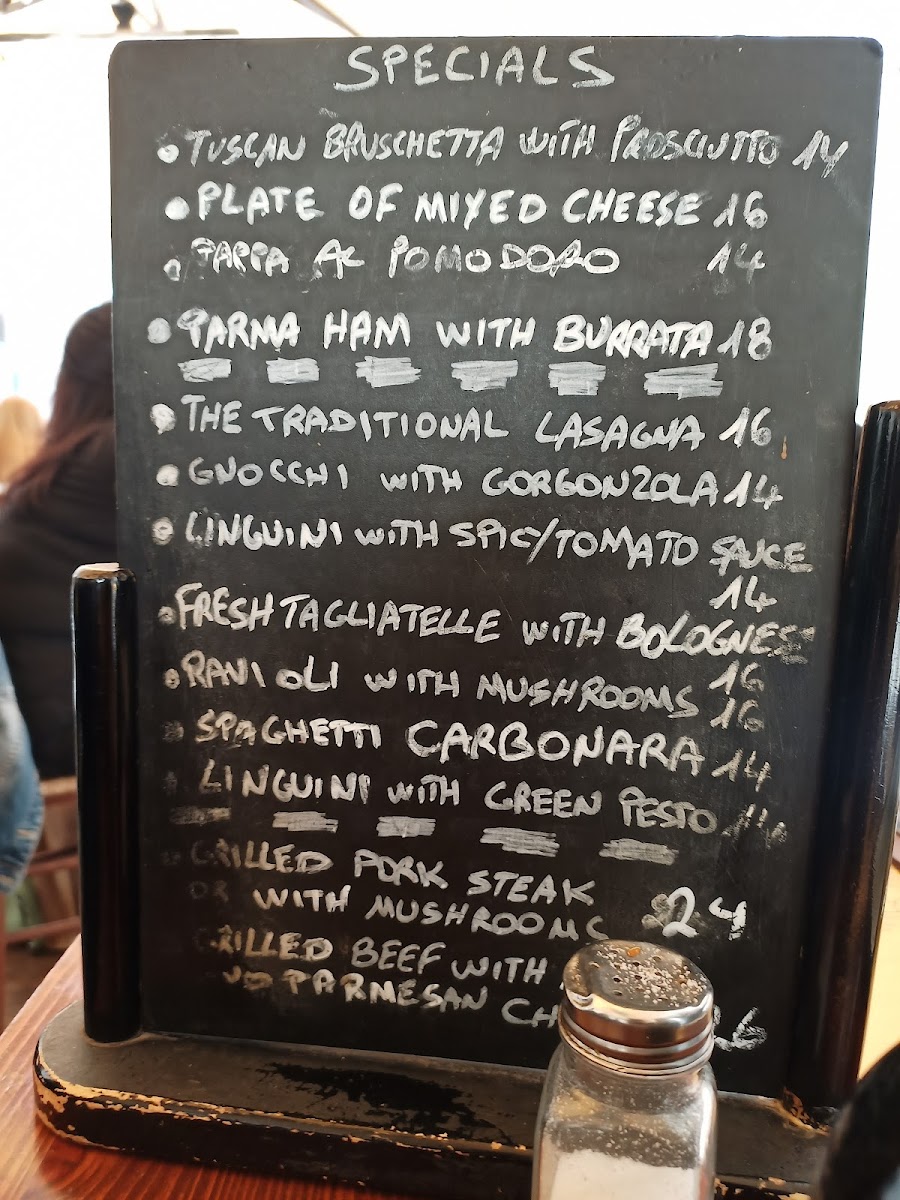 SPECIALS
TUSCAN BRUSCHETTA WITH PROSCIUTTO 14
PLATE OF MIXED CHEESE 16
PAPPA AL POMODORO 14
PARMA HAM WITH BURRATA 18
THE TRADITIONAL LASAGNA 16
GNOCCHI WITH GORGONZOLA 14
LINGUINI WITH SPIC/TOMATO SAUCE
14
FRESH TAGLIATELLE WITH BOLOGNESE
16
RAVIOLI WITH MUSHROOMS
16
SPAGHETTI CARBONARA 14
LINGUINI WITH GREEN PESTO 14
GRILLED PORK STEAK
OR WITH MUSHROOMS 24
GRILLED BEEF WITH
PARMESAN CH 26